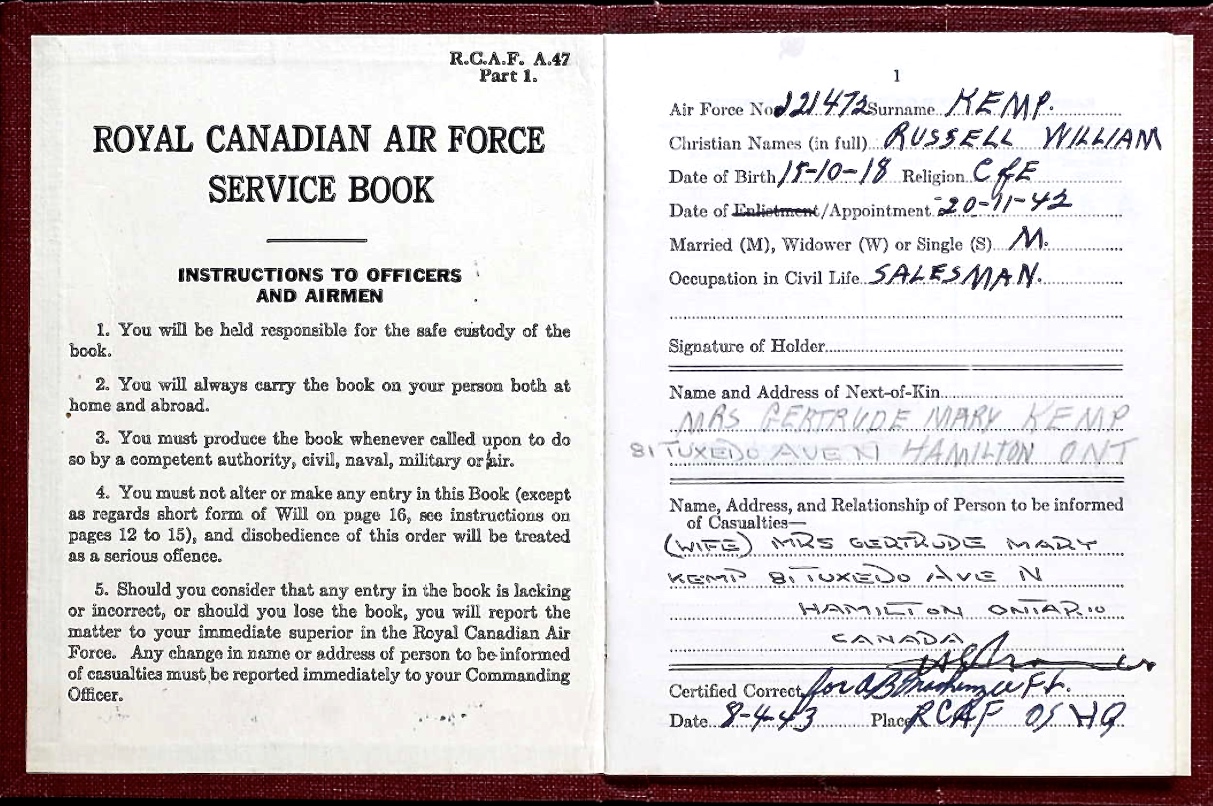 R.C.A.F. A.47
Part 1.
ROYAL CANADIAN AIR FORCE
SERVICE BOOK
INSTRUCTIONS TO OFFICERS
AND AIRMEN
1. You will be held responsible for the safe custody of the
book.
2. You will always carry the book on your person both at
home and abroad.
3. You must produce the book whenever called upon to do
so by a competent authority, civil, naval, military or air.
4. You must not alter or make any entry in this Book (except
as regards short form of Will on page 16, see instructions on
pages 12 to 15), and disobedience of this order will be treated
as a serious offence.
5. Should you consider that any entry in the book is lacking
or incorrect, or should you lose the book, you will report the
matter to your immediate superior in the Royal Canadian Air
Force. Any change in name or address of person to be informed
of casualties must be reported immediately to your Commanding
Officer.
1
Air Force No. J21472 Surname KEMP.
Christian Names (in full) RUSSELL WILLIAM
Date of Birth 15-10-18 Religion C of E
Date of Enlistment/Appointment 20-11-42
Married (M), Widower (W) or Single (S) M.
Occupation in Civil Life SALESMAN.
Signature of Holder
Name and Address of Next-of-Kin
MRS GERTRUDE MARY KEMP
81 TUXEDO AVE N HAMILTON ONT
Name, Address, and Relationship of Person to be informed
of Casualties—
(WIFE) MRS GERTRUDE MARY
KEMP 81 TUXEDO AVE N
HAMILTON ONTARIO
CANADA
Certified Correct for F/L.
Date 8-4-43 Place RCAF OS HQ